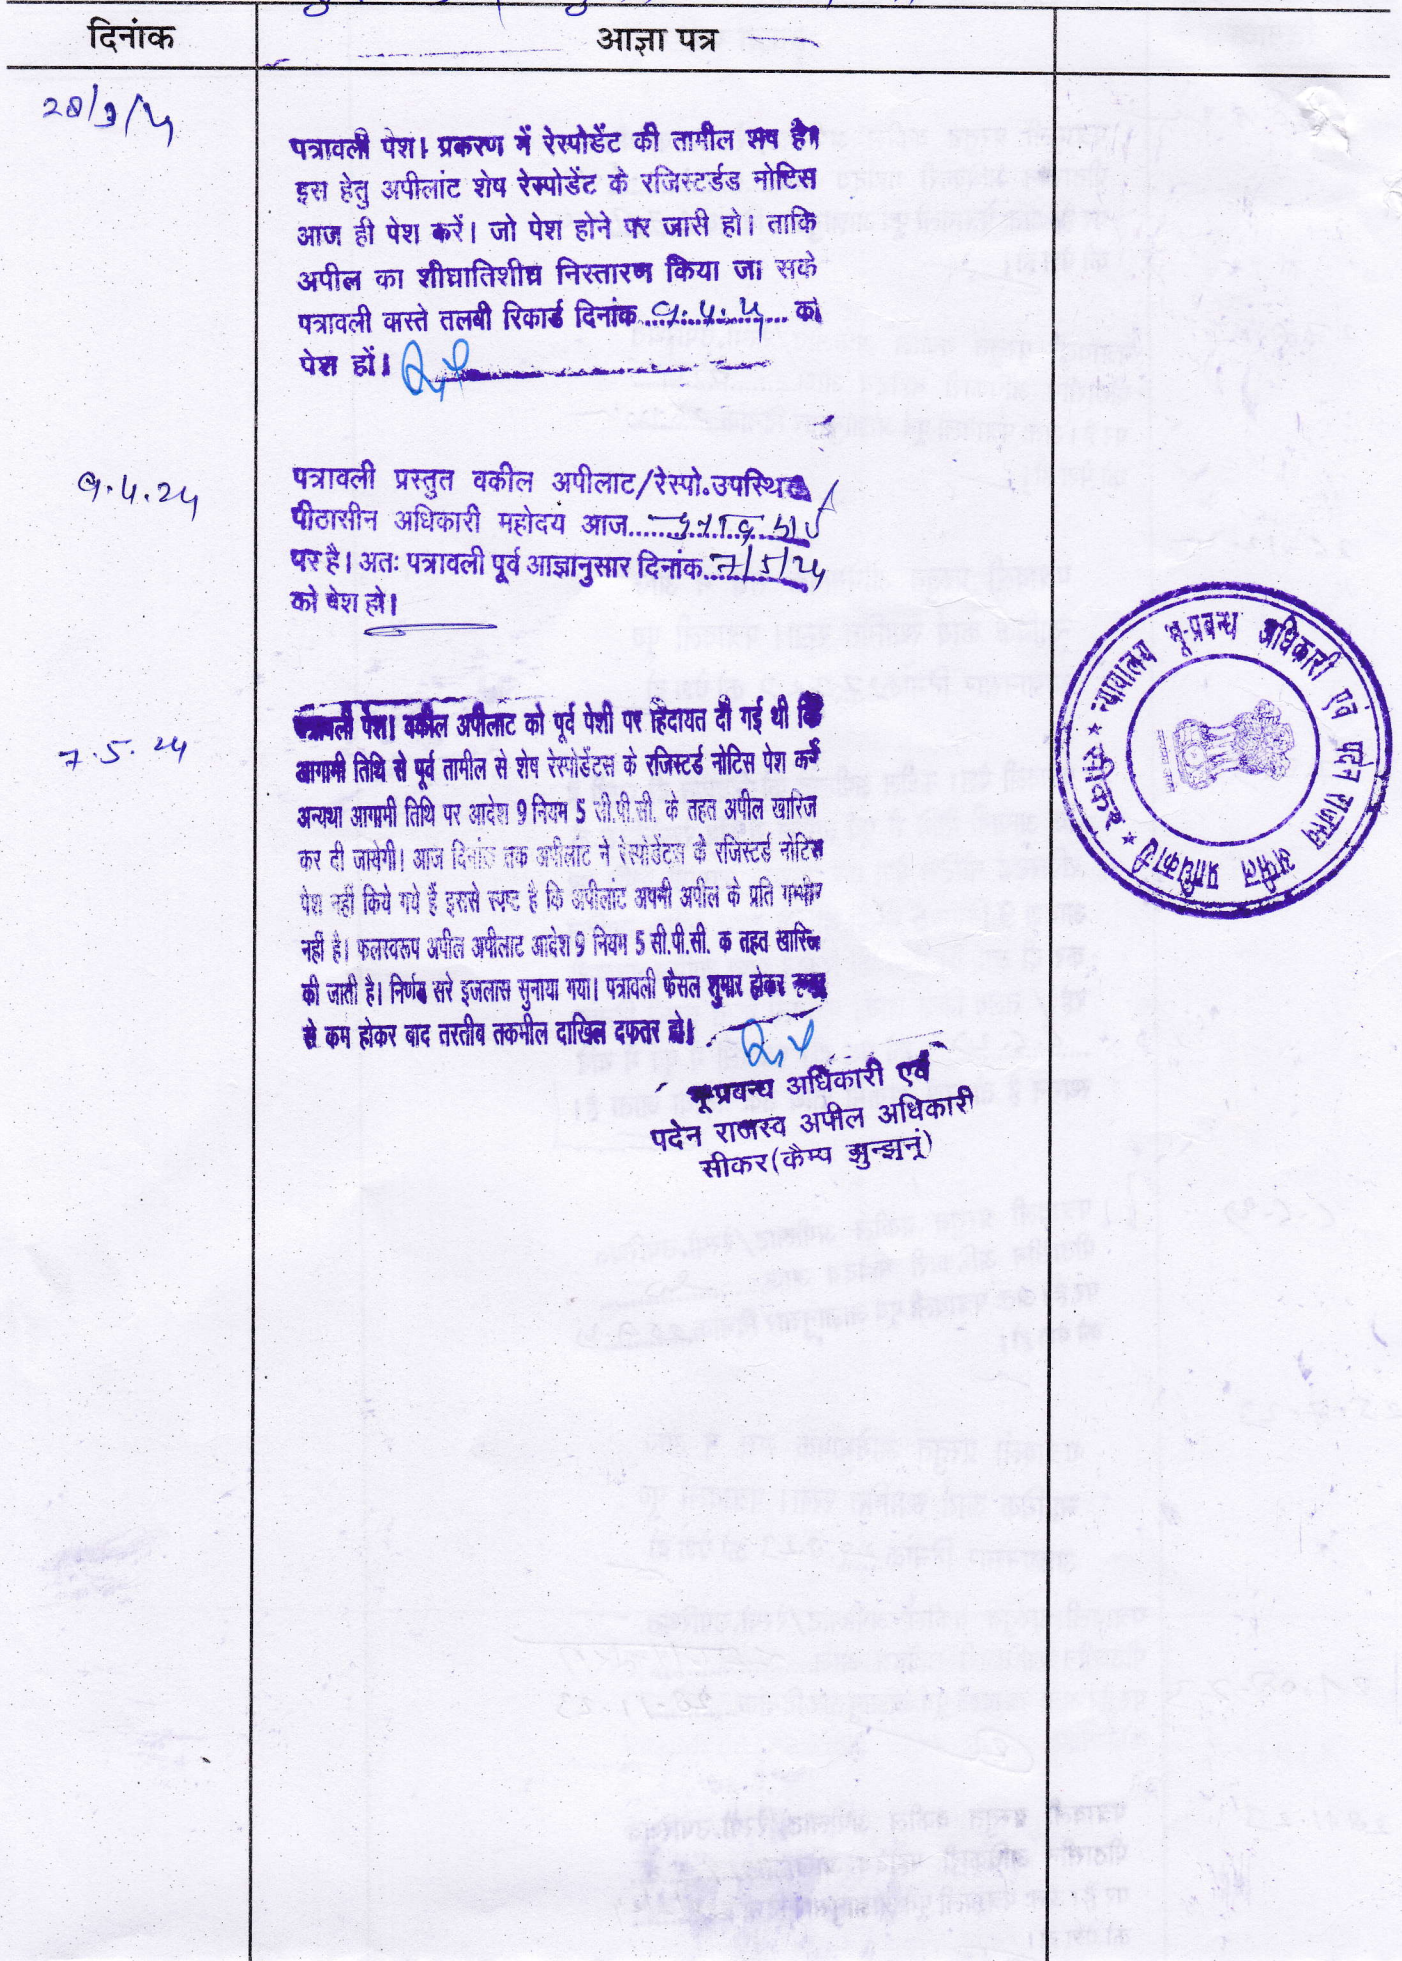 दिनांक
आज्ञा पत्र
पत्रावली पेश। प्रकरण में रेस्पोडेंट की तामील शेष है।
इस हेतु अपीलांट शेष रेस्पोडेंट के रजिस्टर्डड नोटिस
आज ही पेश करें। जो पेश होने पर जारी हो। ताकि
अपील का शीघ्रातिशीघ्र निस्तारण किया जा सके
पत्रावली वास्ते तलबी रिकार्ड दिनांक 9.4.24 को
पेश हों।
9.4.24
पत्रावली प्रस्तुत वकील अपीलाट/रेस्पो.उपस्थित
पीठासीन अधिकारी महोदय आज
पर है। अतः पत्रावली पूर्व आज्ञानुसार दिनांक 7/5/24
को पेश हो।
7.5.24
पत्रावली पेश। वकील अपीलाट को पूर्व पेशी पर हिदायत दी गई थी कि
आगामी तिथि से पूर्व तामील से शेष रेस्पोडेंटस के रजिस्टर्ड नोटिस पेश करें
अन्यथा आगामी तिथि पर आदेश 9 नियम 5 सी.पी.सी. के तहत अपील खारिज
कर दी जायेगी। आज दिनांक तक अपीलांट ने रेस्पोडेंटस के रजिस्टर्ड नोटिस
पेश नहीं किये गये हैं इससे स्पष्ट है कि अपीलांट अपनी अपील के प्रति गम्भीर
नहीं है। फलस्वरूप अपील अपीलाट आदेश 9 नियम 5 सी.पी.सी. क तहत खारिज
की जाती है। निर्णय सरे इजलास सुनाया गया। पत्रावली फैसल शुमार होकर नम्बर
से कम होकर बाद तरतीब तकमील दाखिल दफतर हो।
भू-प्रबन्ध अधिकारी एवं
पदेन राजस्व अपील अधिकारी
सीकर(कैम्प झुन्झुनूं)
न्यायालय भू-प्रबन्ध अधिकारी एवं पदेन राजस्व अपील प्राधिकारी
* सीकर *